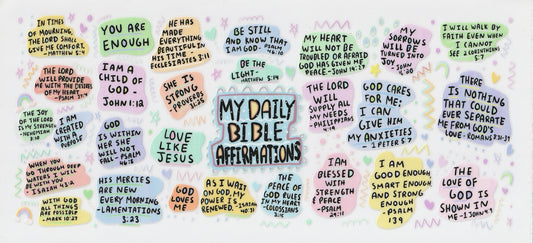 IN TIMES
OF MOURNING,
THE LORD SHALL
GIVE ME COMFORT.
- MATTHEW 5:4
YOU ARE
ENOUGH
HE HAS
MADE
EVERYTHING
BEAUTIFUL
IN HIS TIME -
ECCLESIASTES 3:11
BE STILL
AND KNOW THAT
I AM GOD - PSALM
46:10
MY HEART
WILL NOT BE
TROUBLED OR AFRAID
GOD HAS GIVEN ME
PEACE - JOHN 14:27
MY
SORROWS
WILL BE
TURNED INTO
JOY. - JOHN
16:20
I WILL WALK BY
FAITH EVEN WHEN
I CANNOT
SEE - 2 CORINTHIANS
5:7
THE LORD
WILL PROVIDE
ME WITH THE DESIRES
OF MY HEART.
- PSALM 37:4
I AM A
CHILD OF
GOD -
JOHN 1:12
SHE IS
STRONG
- PROVERBS
31:25
BE THE
LIGHT -
MATTHEW 5:14
THE LORD
WILL SUPPLY
ALL MY
NEEDS -
PHILIPPIANS
4:19
GOD CARES
FOR ME;
I CAN
GIVE HIM
MY ANXIETIES
- 1 PETER 5:7
THERE
IS NOTHING
THAT COULD
EVER SEPARATE
ME FROM GOD'S
LOVE - ROMANS 8:38-39
THE JOY
OF THE LORD
IS MY STRENGTH
- NEHEMIAH
8:10
I AM
CREATED
WITH
PURPOSE
GOD
IS WITHIN
HER SHE
WILL NOT
FALL - PSALM
46:5
LOVE
LIKE
JESUS
MY DAILY
BIBLE
AFFIRMATIONS
WHEN YOU
GO THROUGH DEEP
WATERS, I WILL
BE WITH YOU
- ISAIAH 43:2
HIS MERCIES
ARE NEW
EVERY MORNING
- LAMENTATIONS
3:23
GOD
LOVES
ME
AS I WAIT
ON GOD, MY
POWER IS
RENEWED. - ISAIAH
40:31
THE
PEACE OF
GOD RULES
IN MY HEART
- COLOSSIANS
3:15
I AM
BLESSED
WITH
STRENGTH
& PEACE
- PSALM
29:11
I AM
GOOD ENOUGH,
SMART ENOUGH,
AND STRONG
ENOUGH
- PSALM
139
THE
LOVE OF
GOD IS
SHOWN IN
ME - 1 JOHN 4:9
WITH GOD
ALL THINGS
ARE POSSIBLE
- MARK 10:27